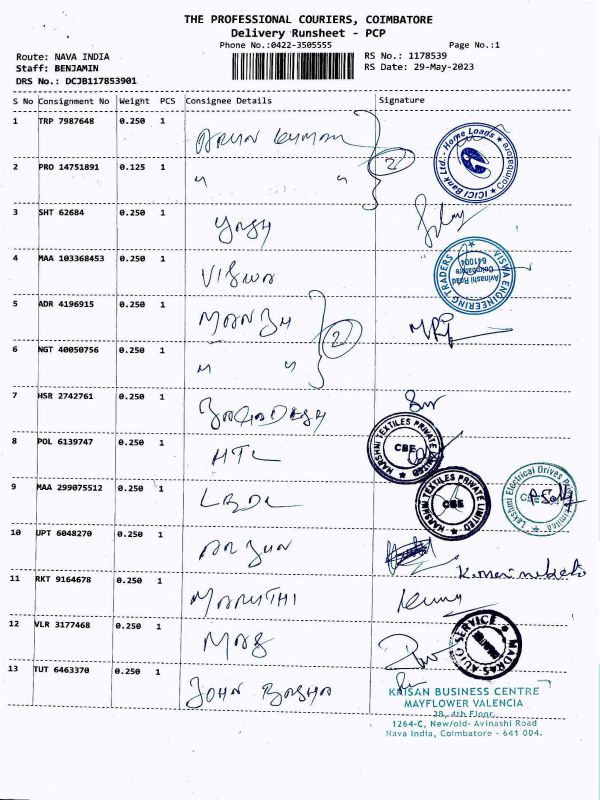 THE PROFESSIONAL COURIERS, COIMBATORE
Delivery Runsheet - PCP
Phone No.:0422-3505555 Page No.:1
Route: NAVA INDIA RS No.: 1178539
Staff: BENJAMIN RS Date: 29-May-2023
DRS No.: DCJB117853901
S No Consignment No Weight PCS Consignee Details Signature
1 TRP 7987648 0.250 1 ARUN KUMAR
ICICI Bank Ltd. - Home Loans ★ Coimbatore ★
2 PRO 14751891 0.125 1 " " 2
3 SHT 62684 0.250 1 YASH
4 MAA 103368453 0.250 1 VISWA
VISWA ENGINEERING TRADERS ★ Avinashi Road Coimbatore 641004
5 ADR 4196915 0.250 1 MANJU
6 NGT 40050756 0.250 1 " " 2
7 HSR 2742761 0.250 1 JAGADESH
8 POL 6139747 0.250 1 HTL
HARSHNI TEXTILES PRIVATE LIMITED ★ CBE
9 MAA 299075512 0.250 1 LEDL
HARSHNI TEXTILES PRIVATE LIMITED ★ CBE
Lakshmi Electrical Drives Private Limited ★ CBE
10 UPT 6048270 0.250 1 ARJUN
11 RKT 9164678 0.250 1 MARUTHI
12 VLR 3177468 0.250 1
MADRAS AUTO SERVICE ★
13 TUT 6463370 0.250 1 JOHN BASHA
KRISAN BUSINESS CENTRE
MAYFLOWER VALENCIA
3B, 4th Floor,
1264-C, New/old- Avinashi Road
Nava India, Coimbatore - 641 004.